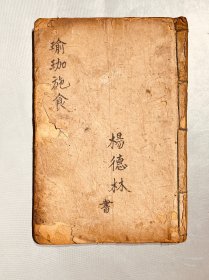 瑜珈施食
楊德林書